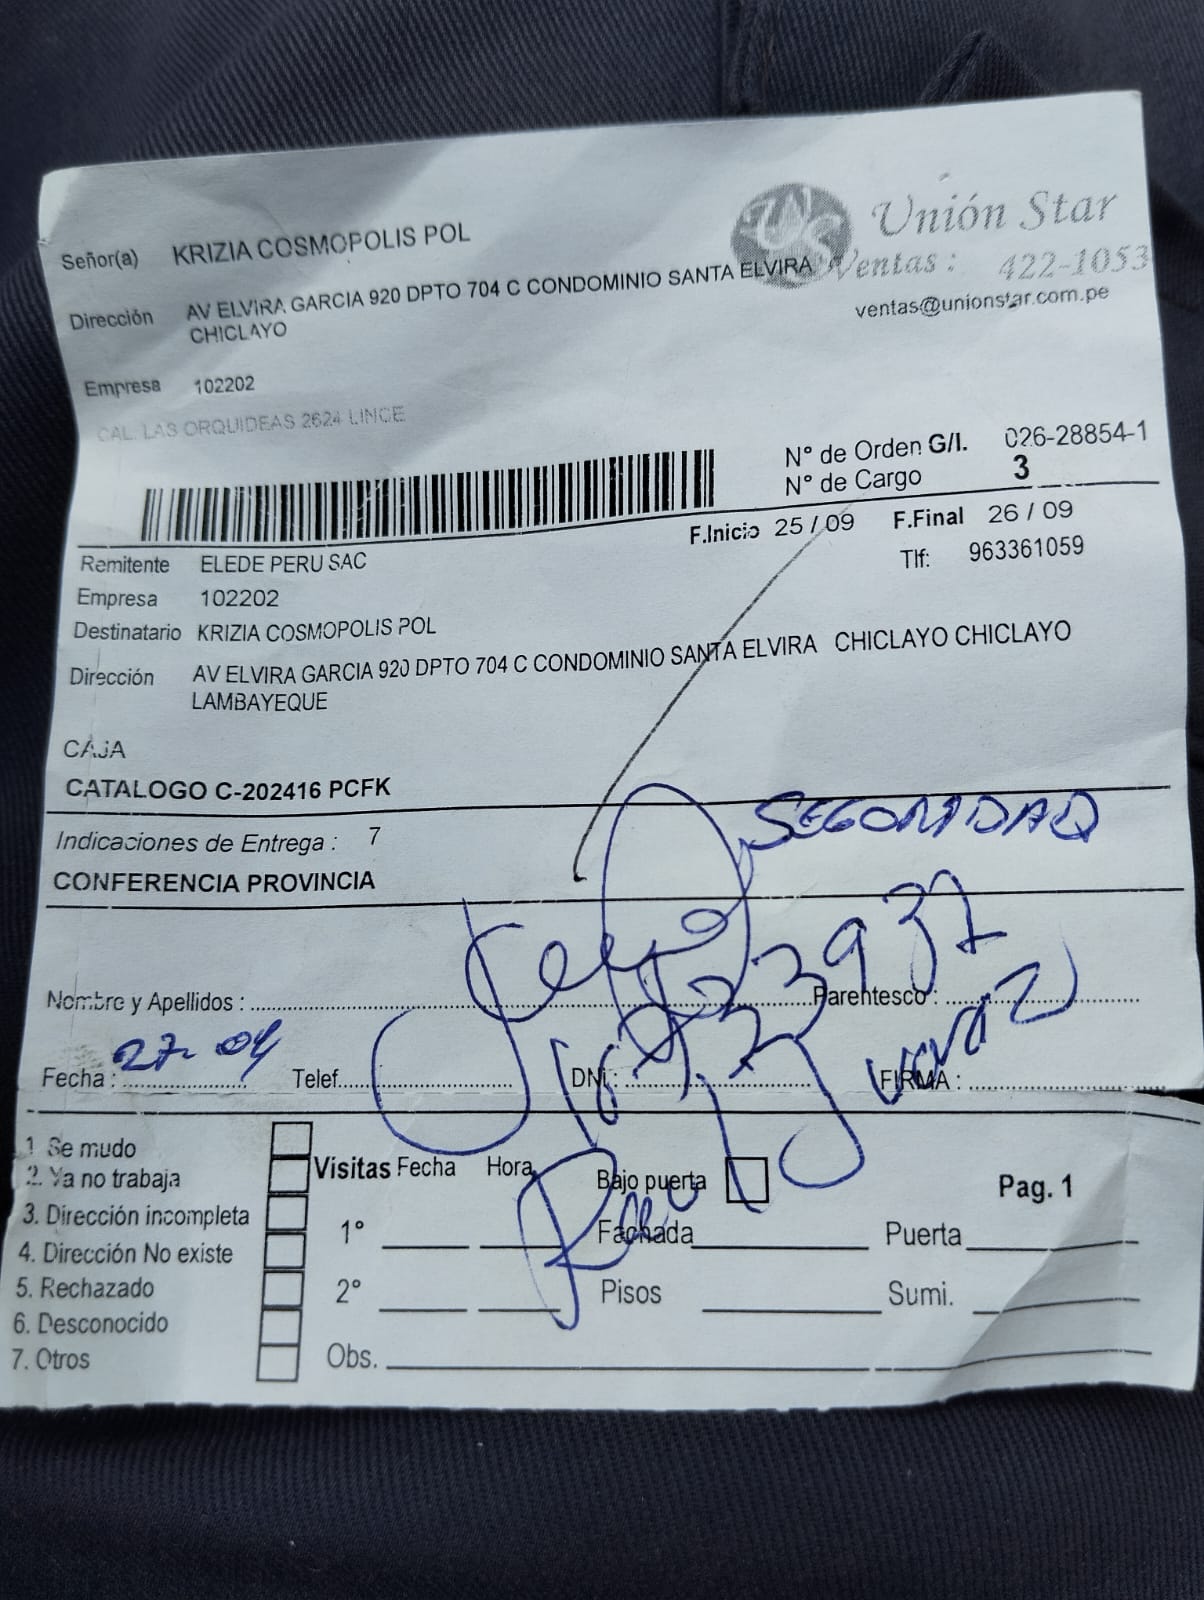 Unión Star
Señor(a) KRIZIA COSMOPOLIS POL
Ventas : 422-1053
Dirección AV ELVIRA GARCIA 920 DPTO 704 C CONDOMINIO SANTA ELVIRA
CHICLAYO
ventas@unionstar.com.pe
Empresa 102202
CAL. LAS ORQUIDEAS 2624 LINCE
N° de Orden G/I. 026-28854-1
N° de Cargo 3
F.Inicio 25 / 09 F.Final 26 / 09
Remitente ELEDE PERU SAC
Tlf: 963361059
Empresa 102202
Destinatario KRIZIA COSMOPOLIS POL
Dirección AV ELVIRA GARCIA 920 DPTO 704 C CONDOMINIO SANTA ELVIRA CHICLAYO CHICLAYO
LAMBAYEQUE
CAJA
CATALOGO C-202416 PCFK
SEGORIDAD
Indicaciones de Entrega : 7
CONFERENCIA PROVINCIA
Nombre y Apellidos : Parentesco :
Fecha : 27-09 Telef. DNI : FIRMA :
1 Se mudo
2. Ya no trabaja
3. Dirección incompleta
4. Dirección No existe
5. Rechazado
6. Desconocido
7. Otros
Visitas Fecha Hora Bajo puerta Pag. 1
1° Fachada Puerta
2° Pisos Sumi.
Obs.